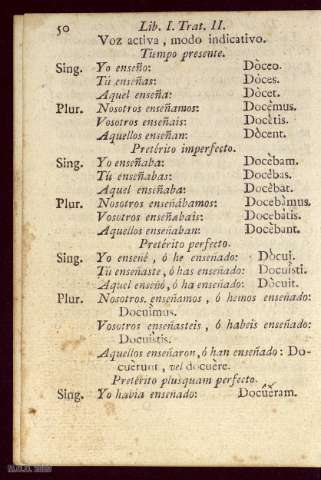 50 Lib. I. Trat. II.
Voz activa, modo indicativo.
Tiempo presente.
Sing. Yo enseño: Dòceo.
Tú enseñas: Dòces.
Aquel enseña: Dòcet.
Plur. Nosotros enseñamos: Docèmus.
Vosotros enseñais: Docètis.
Aquellos enseñan: Dòcent.
Pretérito imperfecto.
Sing. Yo enseñaba: Docèbam.
Tú enseñabas: Docèbas.
Aquel enseñaba: Docèbat.
Plur. Nosotros enseñábamos: Docebàmus.
Vosotros enseñabais: Docebàtis.
Aquellos enseñaban: Docèbant.
Pretérito perfecto.
Sing. Yo enseñé, ó he enseñado: Dòcui.
Tú enseñaste, ó has enseñado: Docuìsti.
Aquel enseñó, ó ha enseñado: Dòcuit.
Plur. Nosotros enseñamos, ó hemos enseñado:
Docuìmus.
Vosotros enseñasteis, ó habeis enseñado:
Docuìstis.
Aquellos enseñaron, ó han enseñado: Do-
cuèrunt, vel docuère.
Pretérito plusquam perfecto.
Sing. Yo habia enseñado: Docùeram.